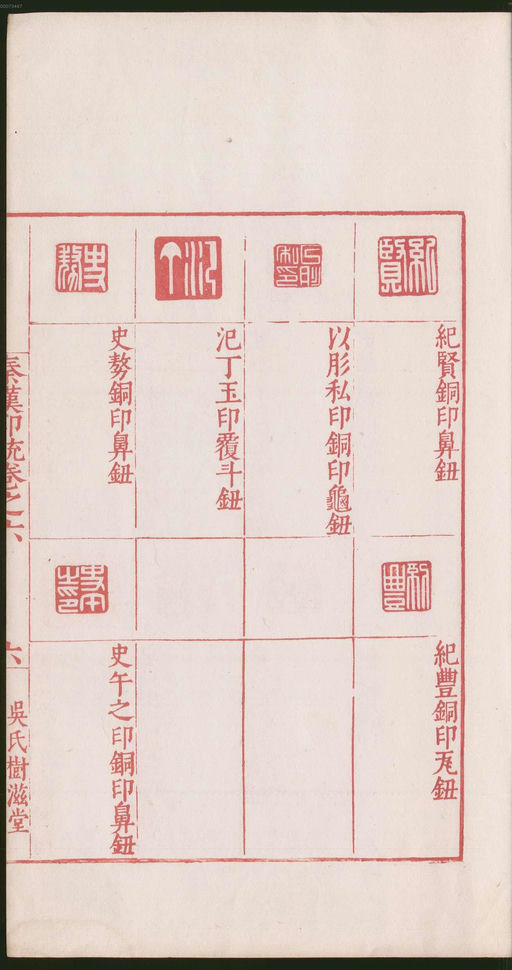 紀賢銅印鼻鈕
以肜私印銅印龜鈕
汜丁玉印覆斗鈕
史驁銅印鼻鈕
紀豐銅印瓦鈕
史午之印銅印鼻鈕
秦漢印統卷之六
六
吳氏樹滋堂
00073447